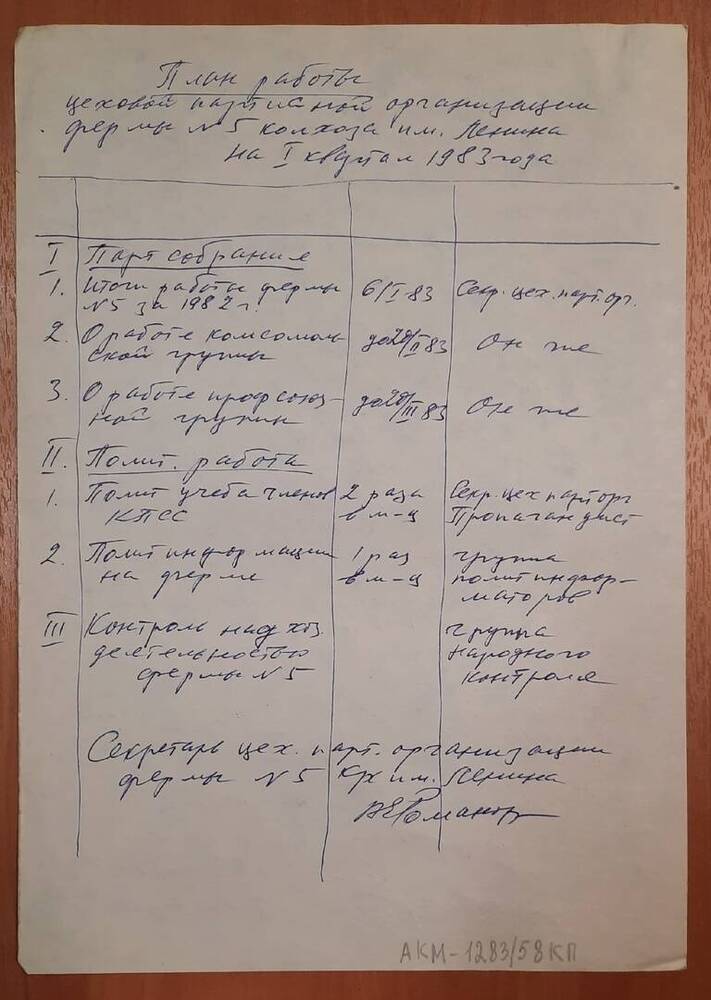 План работы
цеховой партийной организации
фермы №5 колхоза им. Ленина
на I квартал 1983 года
I Партсобрания
1. Итоги работы фермы 6/I-83 Секр. цех. парт. орг.
№5 за 1982 г.
2. О работе комсомоль- до 28/II 83 Он же
ской группы
3. О работе профсоюз- до 28/III 83 Он же
ной группы
II. Полит. работа
1. Полит учеба членов 2 раза Секр. цех парт орг
КПСС в м-ц Пропагандист
2. Полит информации 1 раз группа
на ферме в м-ц полит инфор-
маторов
III Контроль над хоз. группа
деятельностью народного
фермы №5 контроля
Секретарь цех. парт. организации
фермы №5 к-х им. Ленина
АКМ-1283/58КП